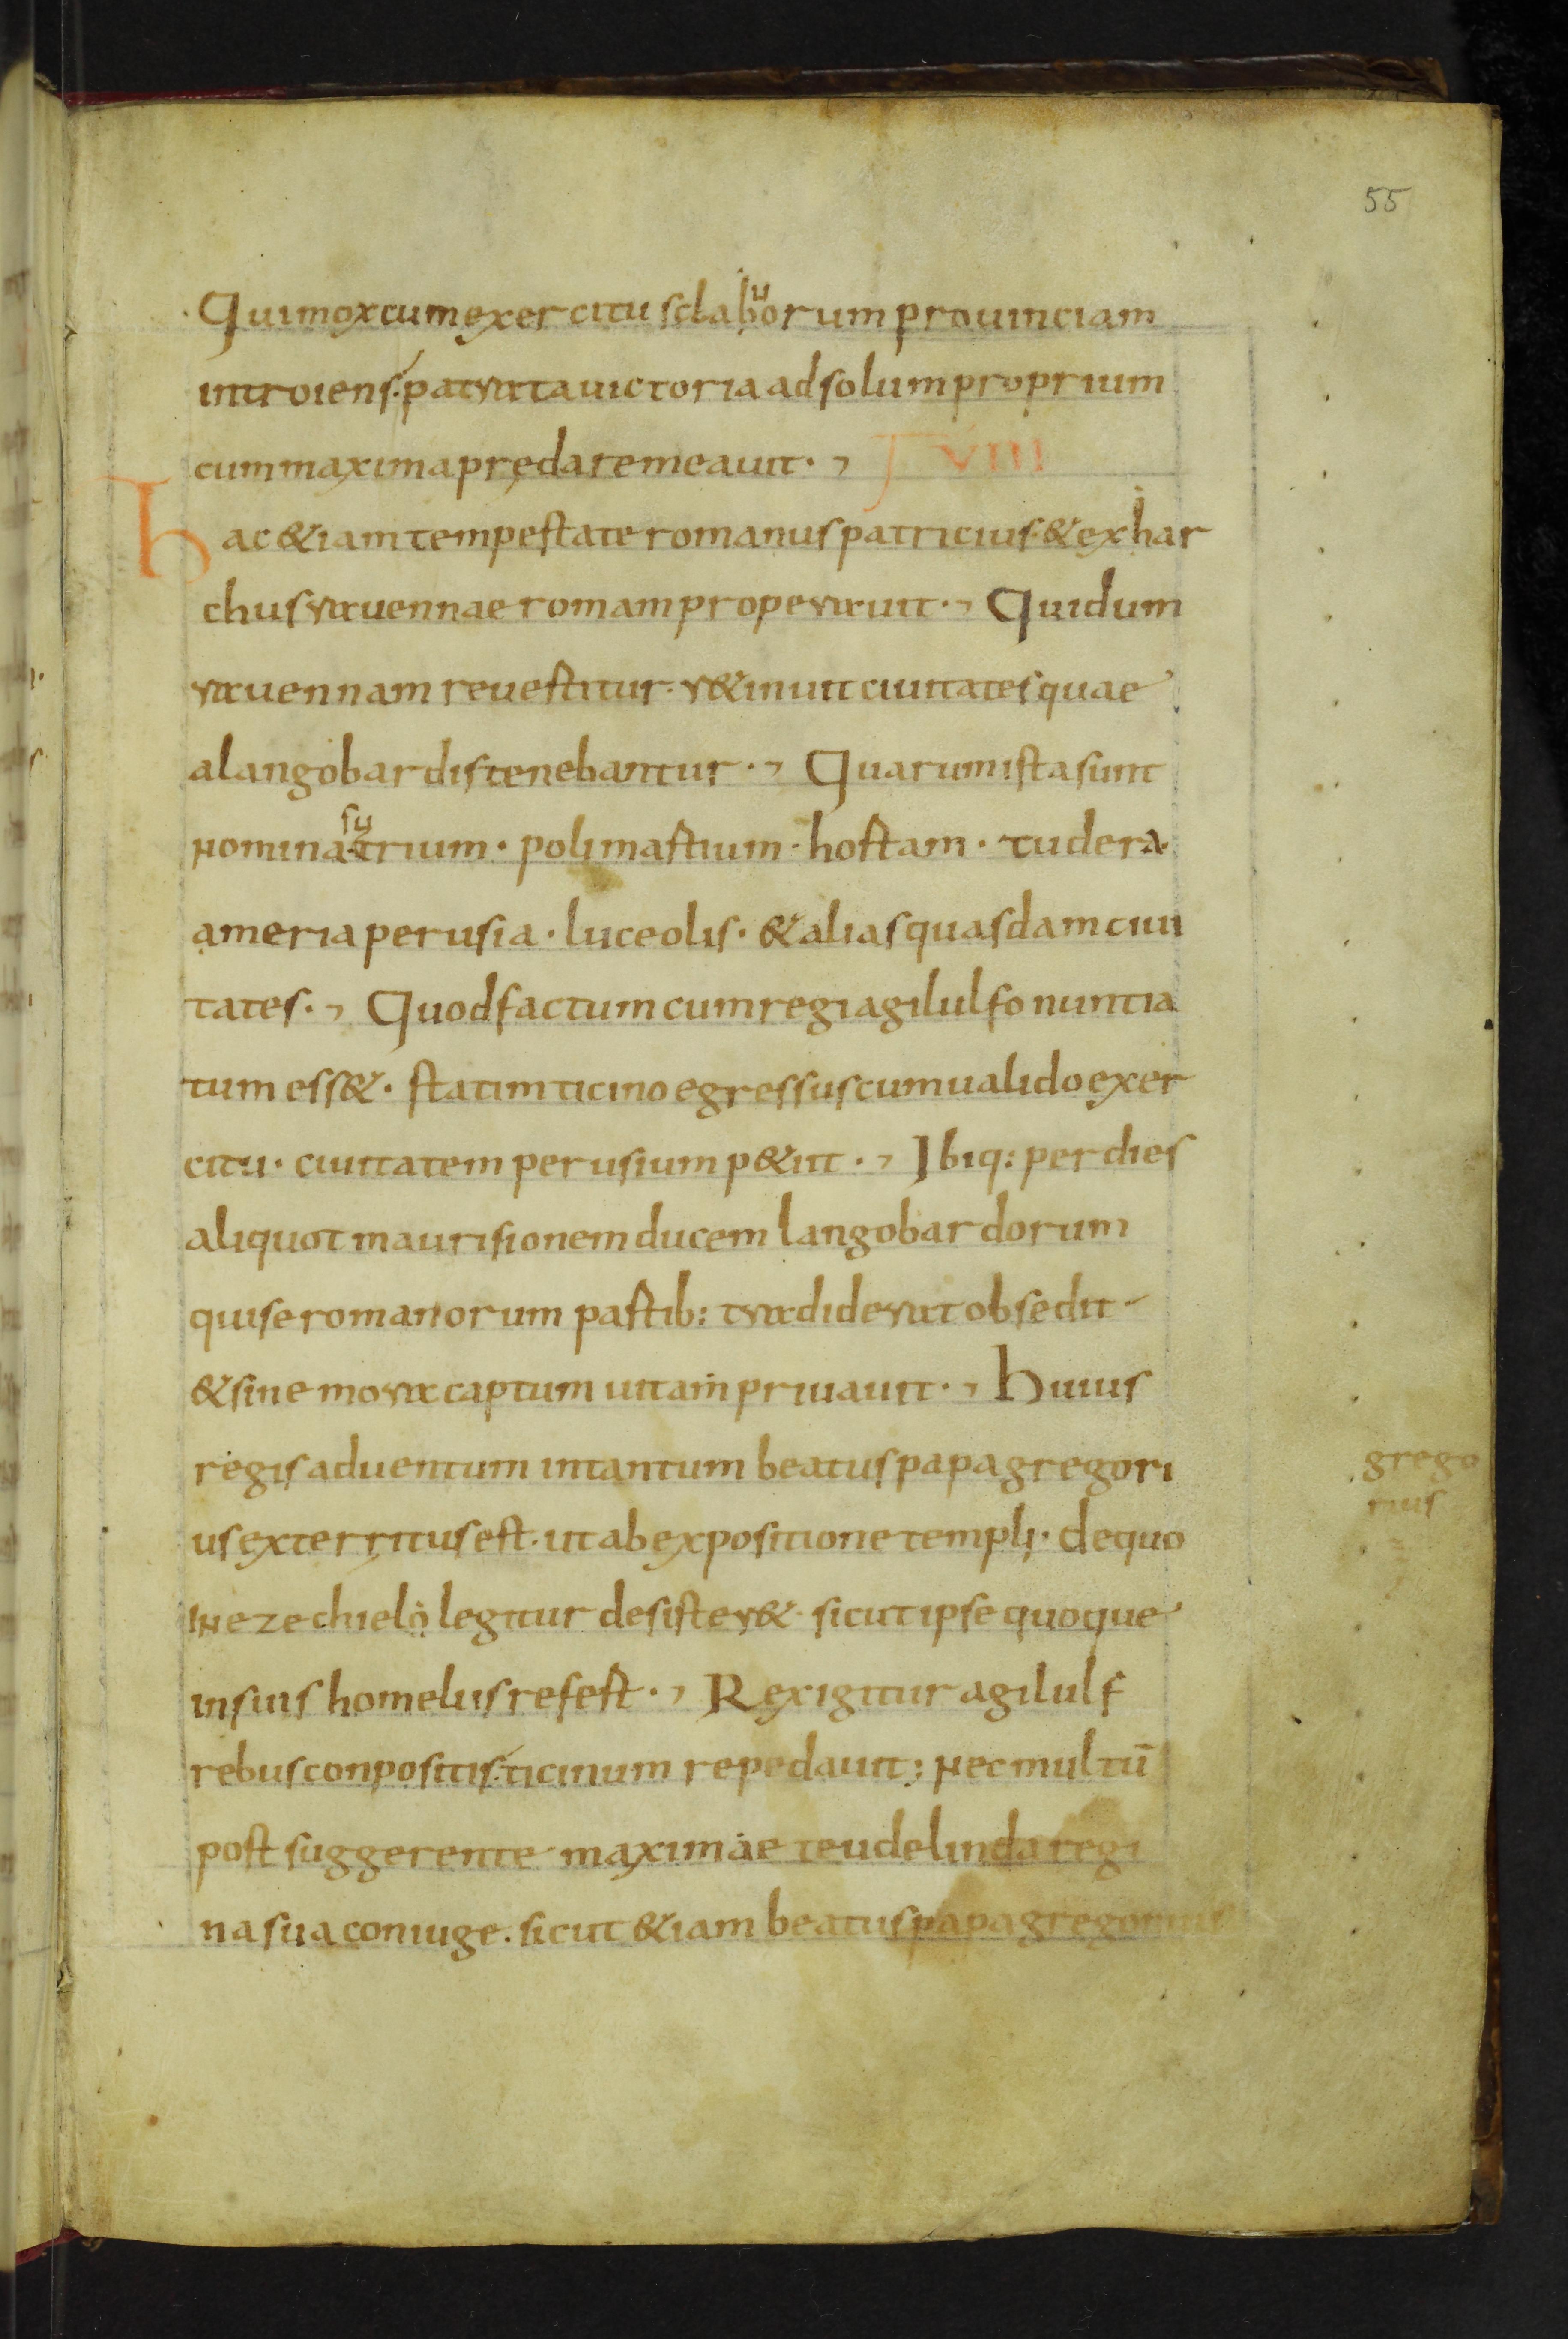 55
Qui mox cum exercitu sclaborum prouinciam
u
introiens· patrata uictoria ad solum proprium
cum maxima preda remeauit· VIII
Hac & iam tempestate romanus patricius· & exhar
chus rauennae romam properauit· Qui dum
rauennam reuestitur· r&inuit ciuitates quae
a langobardis tenebantur· Quarum ista sunt
su
nomina· trium· polimastium· hostam· tudera·
ameria perusia· luceolis· & alias quasdam ciui
tates· Quod factum cum regi agilulfo nuntia
tum ess&· statim ticino egressus cum ualido exer
citu· ciuitatem perusium p&iit· Ibiq: per dies
aliquot maurisionem ducem langobardorum
qui se romanorum pastib: tradiderat obsedit
& sine mora captum uitam priuauit· Huius
regis aduentum in tantum beatus papa gregori
us exterritus est· ut ab expositione templi· de quo
grego
rius
in ezechielo legitur desister&· sicut ipse quoque
in suis homeliis refest· Rex igitur agilulf
rebus conpositis· ticinum repedauit: nec multū
post suggerente maximae teudelinda regi
na sua coniuge· sicut & iam beatus papa gregorius